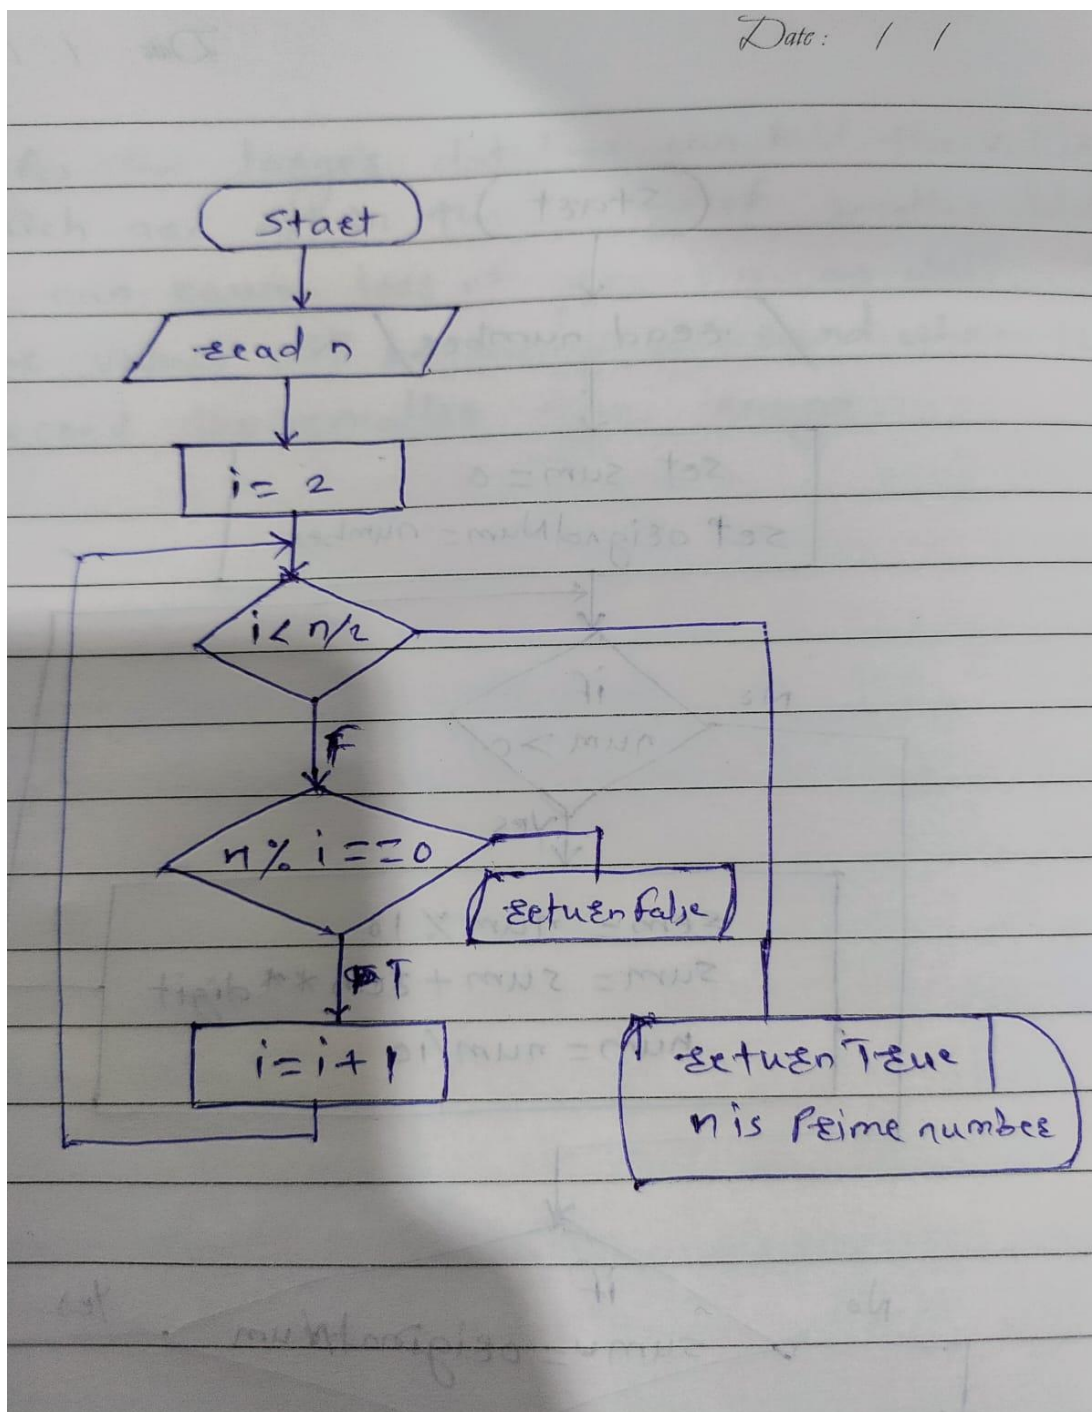 Date: / /
Start
read n
i = 2
i < n/2
F
n % i == 0
return false
T
i = i + 1
return True
n is Prime number